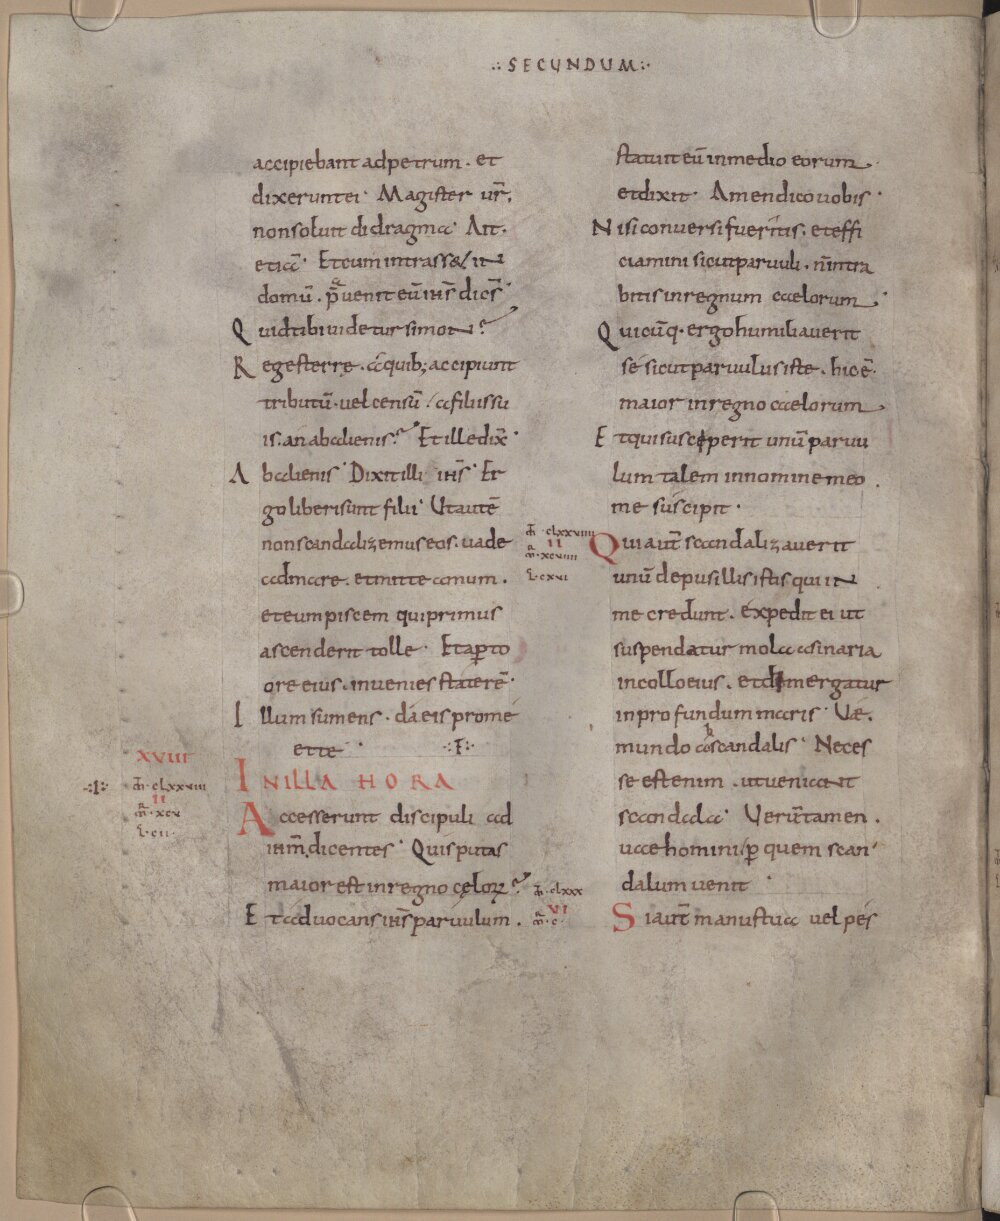 ·:SECUNDUM:·
accipiebant adpetrum. et
dixeruntei· Magister ur̄.
nonsoluit didragma· Ait.
etiā· Etcum intrass& in
domū. p̄uenit eū ihs̄ dicēs·
Quidtibi uidetur simon?
Regesterre. aquib; accipiunt
tributū. uelcensū. afiliissu
is. anabalienis? Etilledix̄·
Abalienis· Dixitilli ihs̄· Er
goliberisunt filii· Utautē
nonscandalizemuseos. uade
admare. etmitte amum.
eteumpiscem quiprimus
ascenderit tolle· Etaperto
ore eius. inuenies staterē·
Illum sumens. da eis prome
ette· ·:F:·
XVIII
INILLA HORA
·:I:· m̄. clxxviii
II
Accesserunt discipuli ad
m̄r. xcv
l. cii.
ihm̄. dicentes· Quisputas
maior est inregno cęlorꝝ?
m̄. clxxx
VI
m̄r. c.
Etaduocans ihs̄ paruulum.
statuit eū inmedio eorum.
etdixit· Amendicouobis·
Nisiconuersi fueritis. eteffi
ciamini sicutparuuli. nīntra
bitis inregnum caelorum.
Quicūq. ergo humiliauerit
se sicutparuulus iste. hic ē.
maior inregno caelorum
Etquisusceperit unū paruu
lum talem innomine meo.
me suscipit·
m̄. clxxviiii
II
m̄r. xcviiii
l. cxvi
Quiaut̄ scandalizauerit
unū depusillis istis qui in
me credunt. expedit ei ut
suspendatur mola asinaria
incollo eius. etdemergatur
inprofundum maris· Uae.
mundo abscandalis· Neces
se estenim. utueniant
scandala· Uerūtamen.
uaehomini. ꝑ quem scan
dalum uenit·
Siaut̄ manustua uel pes